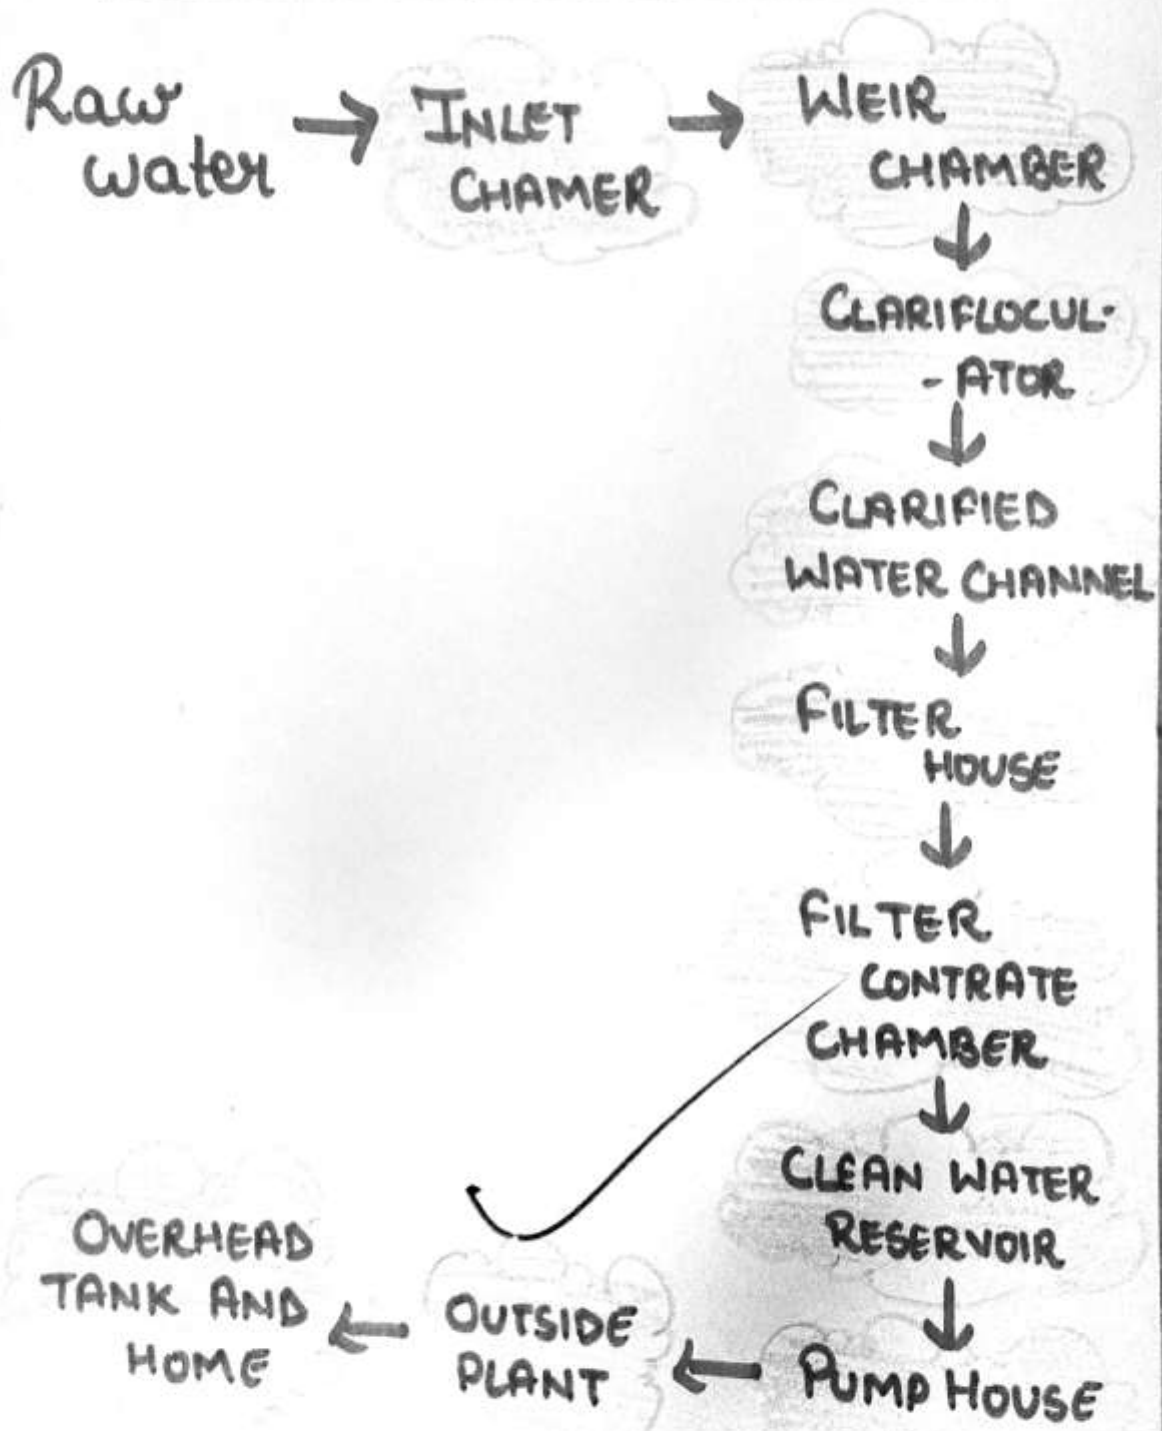 Raw
water
INLET
CHAMER
WEIR
CHAMBER
CLARIFLOCUL-
- ATOR
CLARIFIED
WATER CHANNEL
FILTER
HOUSE
FILTER
CONTRATE
CHAMBER
CLEAN WATER
RESERVOIR
PUMP HOUSE
OUTSIDE
PLANT
OVERHEAD
TANK AND
HOME